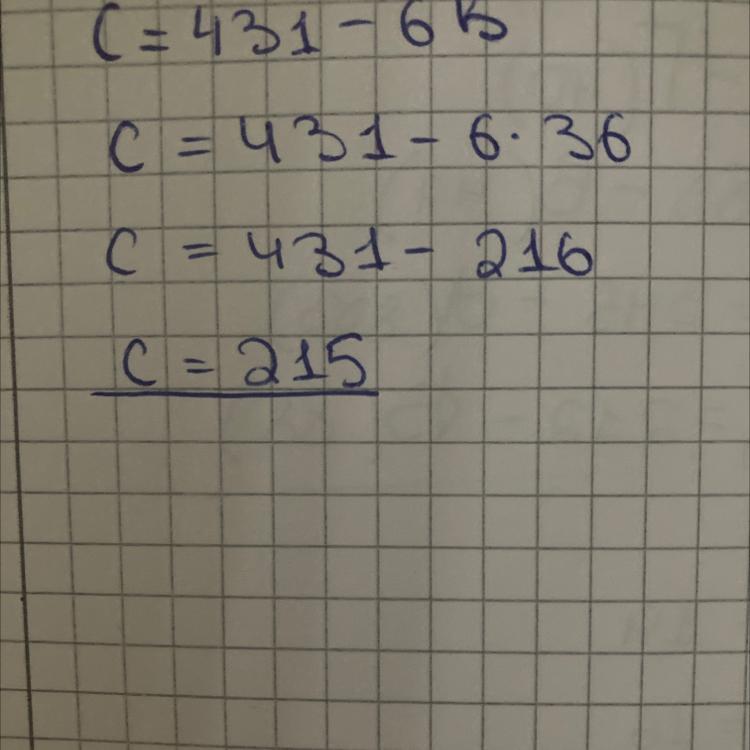 C = 431 - 6B
C = 431 - 6 · 36
C = 431 - 216
C = 215